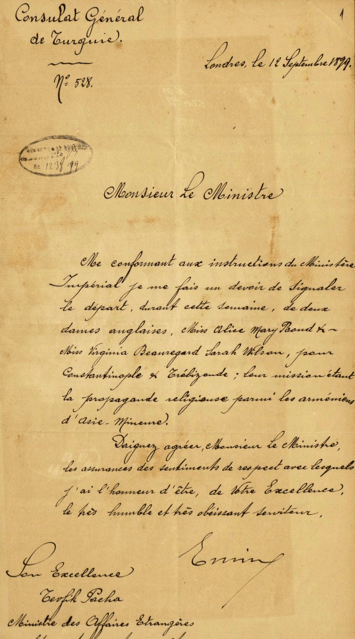 Consulat Général
de Turquie.
Nº 528.
1
Londres, le 12 Septembre 1899.
Monsieur Le Ministre
Me conformant aux instructions du Ministère
Impérial je me fais un devoir de signaler
le départ, durant cette semaine, de deux
dames anglaises, Miss Alice Mary &
Miss Virginia Beauregard Sarah Wilson, pour
Constantinople & Trébizonde ; leur mission étant
la propagande religieuse parmi les arméniens
d'Asie-Mineure.
Daignez agréer, Monsieur Le Ministre,
les assurances des sentiments de respect avec lesquels
j'ai l'honneur d'être, de Votre Excellence,
le très humble et très obéissant serviteur.
Emin
Son Excellence
Tevfik Pacha
Ministre des Affaires Etrangères